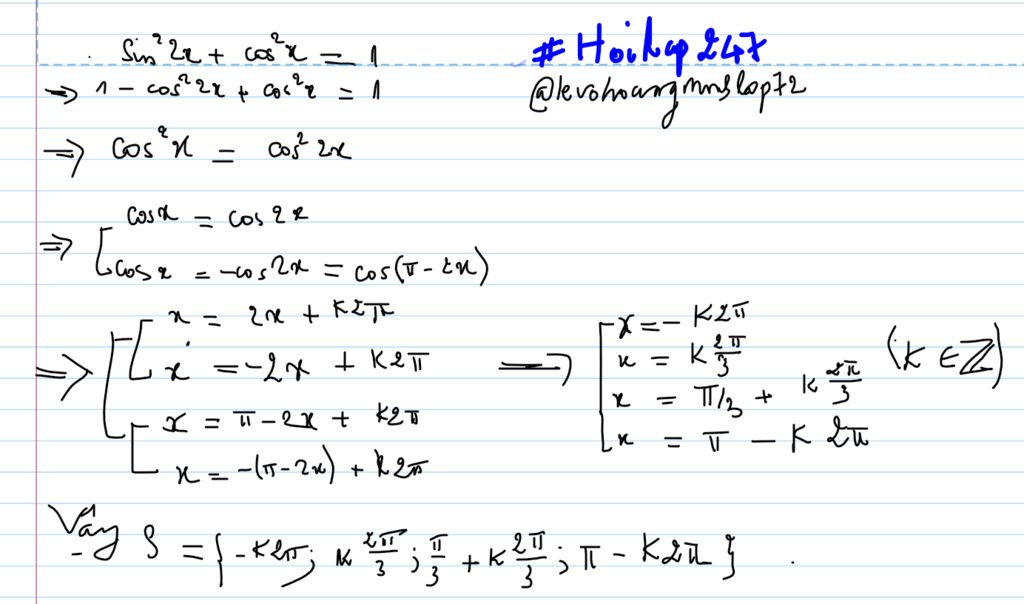 sin²2x + cos²x = 1
#Hoidap247
=> 1 - cos²2x + cos²x = 1
@levohoangmnslop72
=> cos²x = cos²2x
cosx = cos2x
=> [cosx = -cos2x = cos(π - 2x)
x = 2x + k2π
x = -2x + k2π
x = π - 2x + k2π
x = -(π - 2x) + k2π
=> x = - k2π
x = k 2π/3
x = π/3 + k 2π/3
x = π - k 2π
(k ∈ Z)
Vậy S = { -k2π; k 2π/3; π/3 + k 2π/3; π - k2π }.